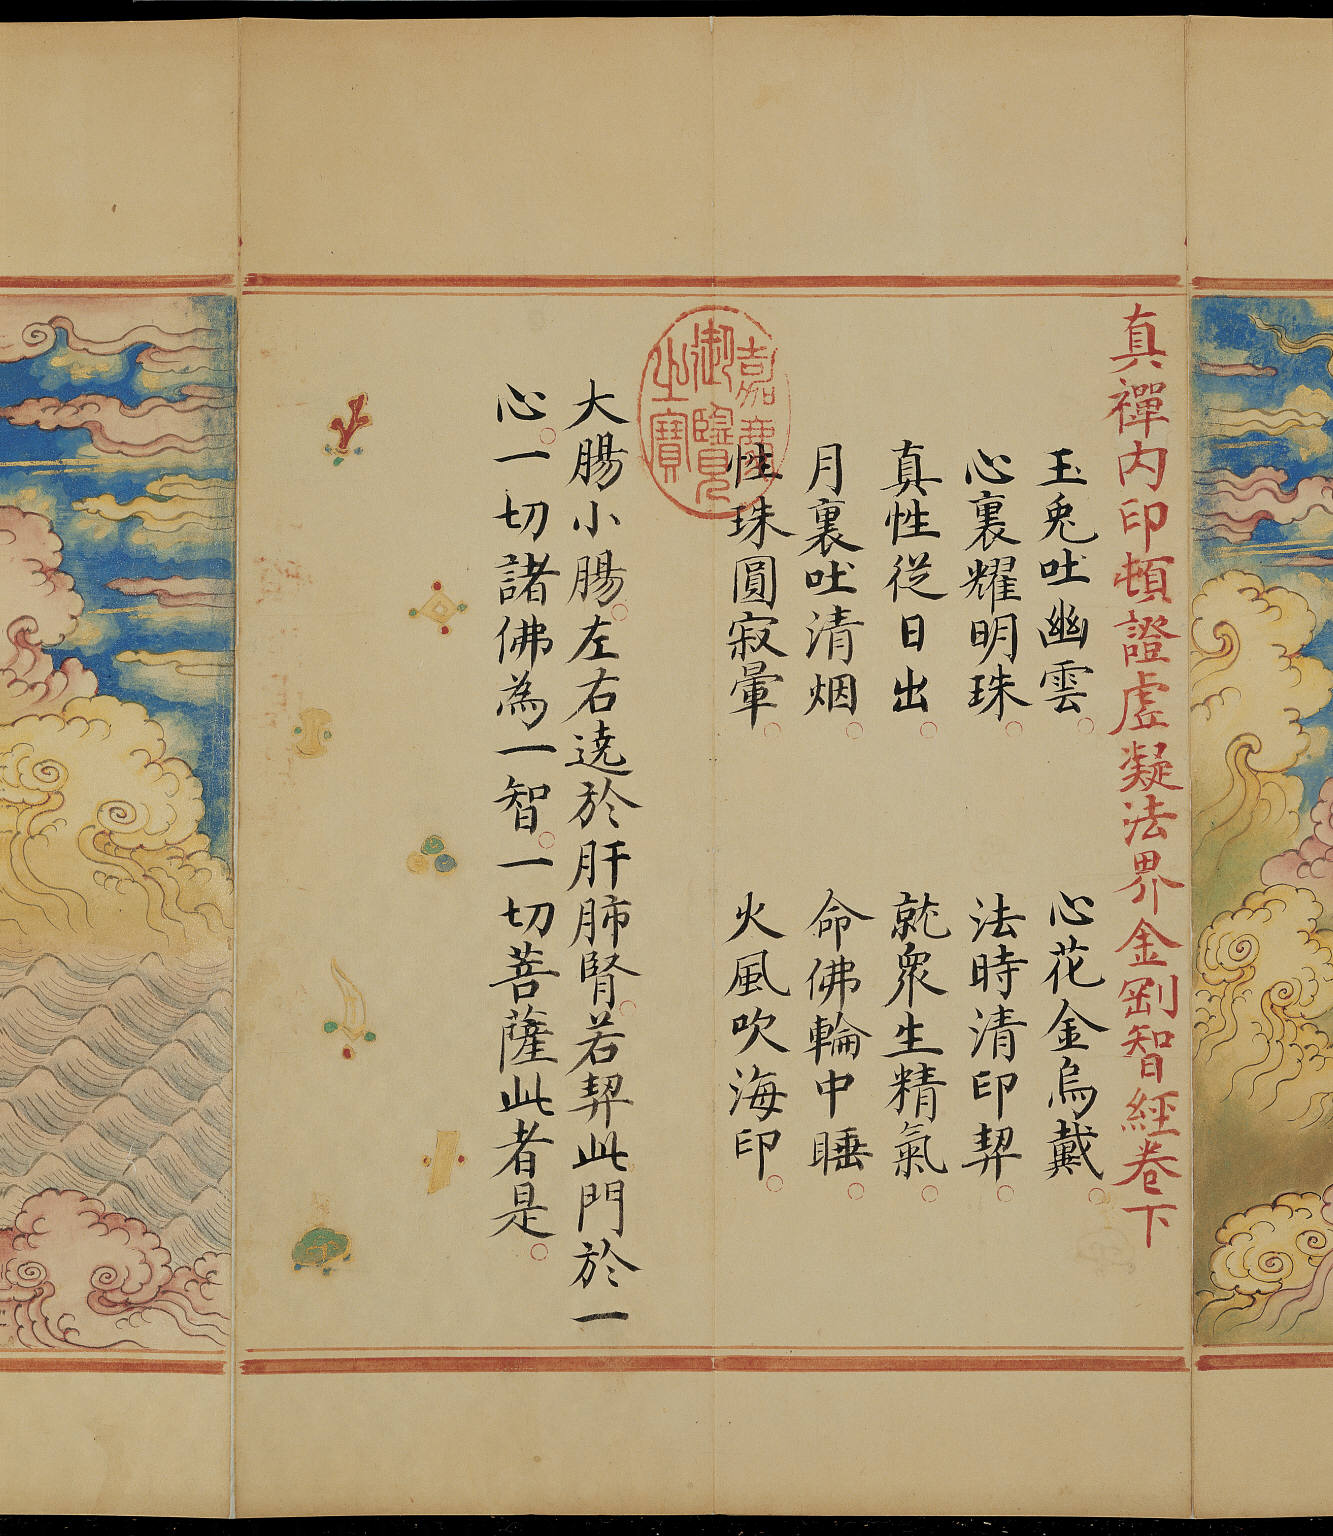 真禪內印頓證虛凝法界金剛智經卷下
玉兔吐幽雲 心花金烏戴
心裏耀明珠 法時清印契
真性從日出 就眾生精氣
月裏吐清烟 命佛輪中睡
性珠圓寂暈 火風吹海印
嘉慶御覽之寶
大腸小腸左右遶於肝肺腎若契此門於一
心一切諸佛為一智一切菩薩此者是